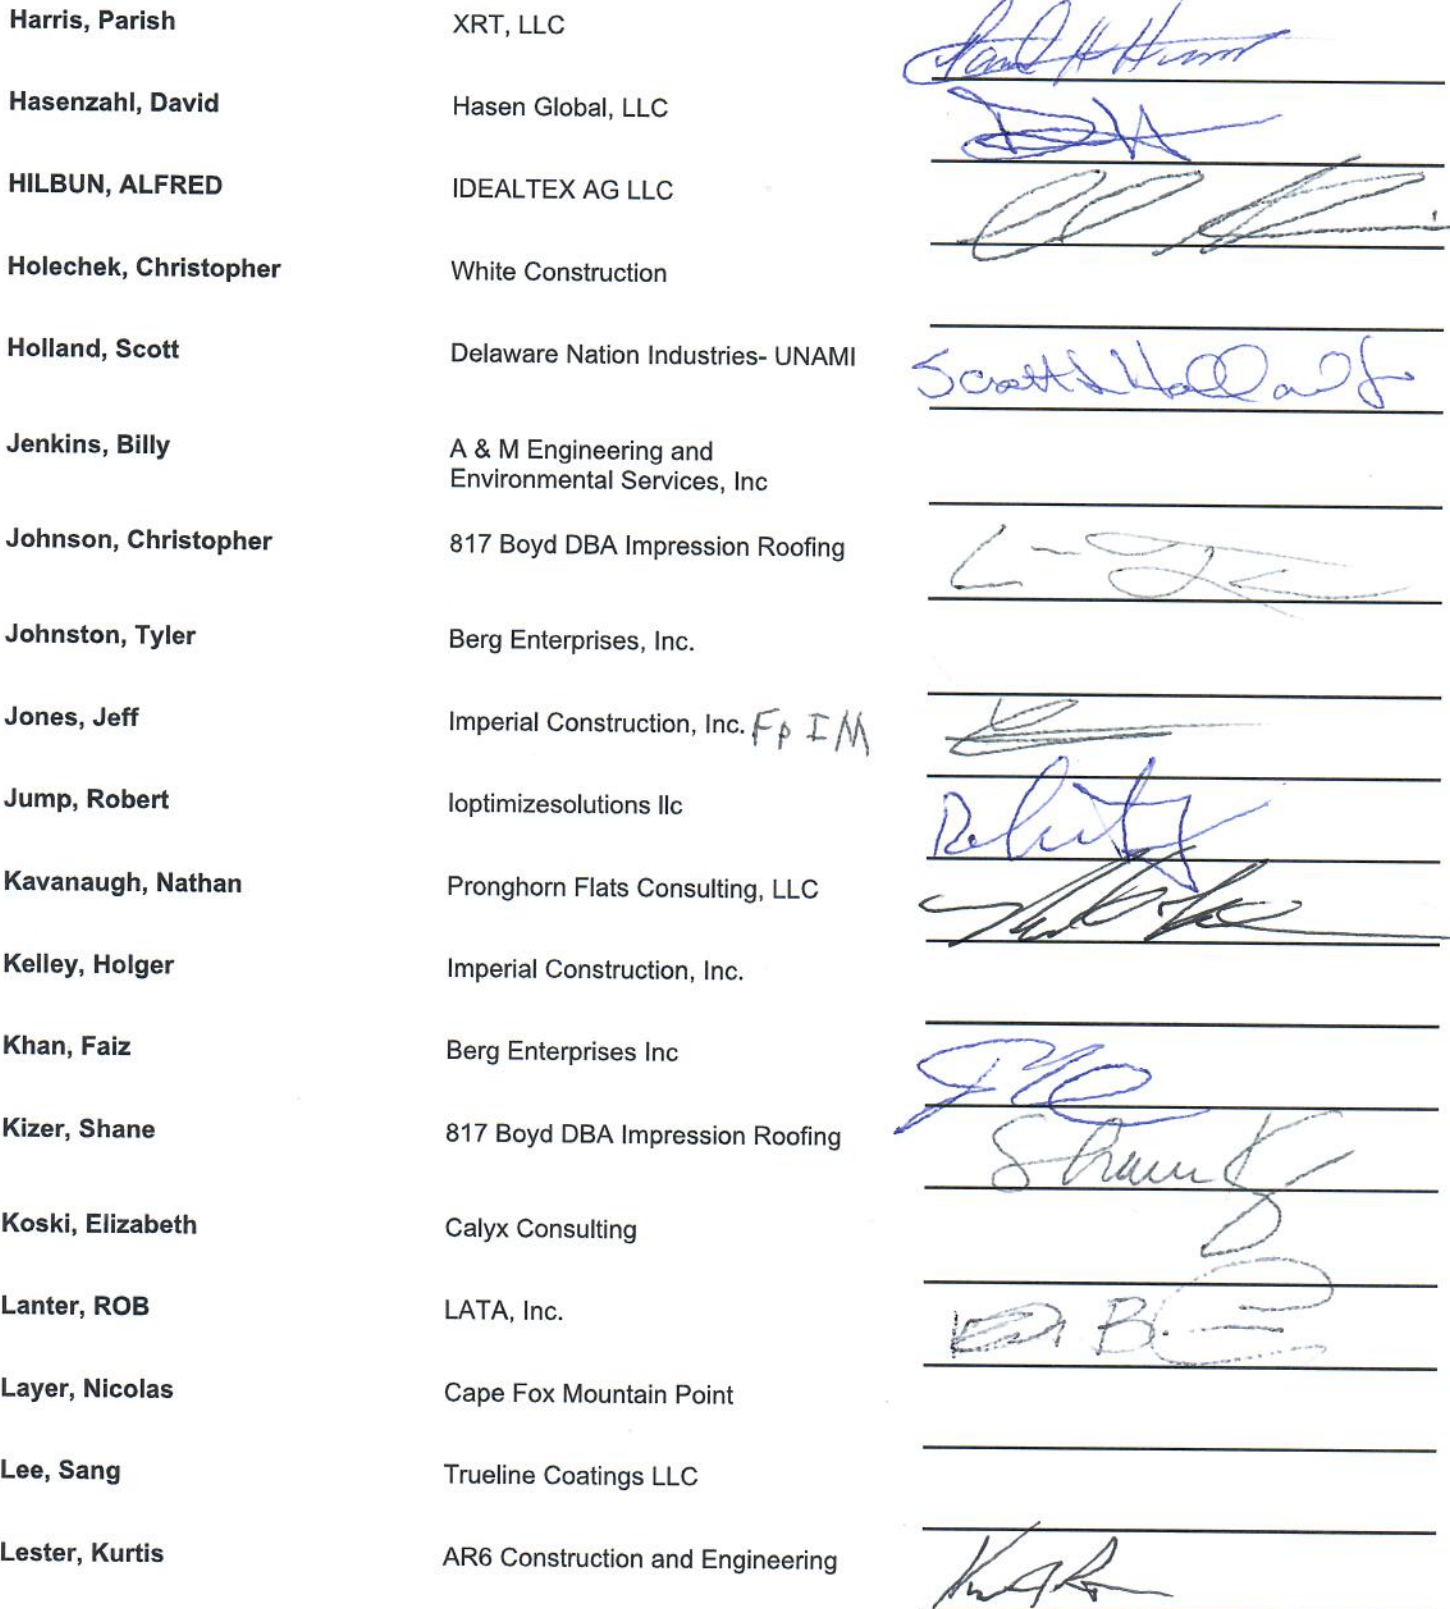 Harris, Parish XRT, LLC
Hasenzahl, David Hasen Global, LLC
HILBUN, ALFRED IDEALTEX AG LLC
Holechek, Christopher White Construction
Holland, Scott Delaware Nation Industries- UNAMI Scott Holland Jr
Jenkins, Billy A & M Engineering and
Environmental Services, Inc
Johnson, Christopher 817 Boyd DBA Impression Roofing
Johnston, Tyler Berg Enterprises, Inc.
Jones, Jeff Imperial Construction, Inc. Fp IM
Jump, Robert Ioptimizesolutions llc Robert
Kavanaugh, Nathan Pronghorn Flats Consulting, LLC
Kelley, Holger Imperial Construction, Inc.
Khan, Faiz Berg Enterprises Inc
Kizer, Shane 817 Boyd DBA Impression Roofing Shane K
Koski, Elizabeth Calyx Consulting
Lanter, ROB LATA, Inc.
Layer, Nicolas Cape Fox Mountain Point
Lee, Sang Trueline Coatings LLC
Lester, Kurtis AR6 Construction and Engineering